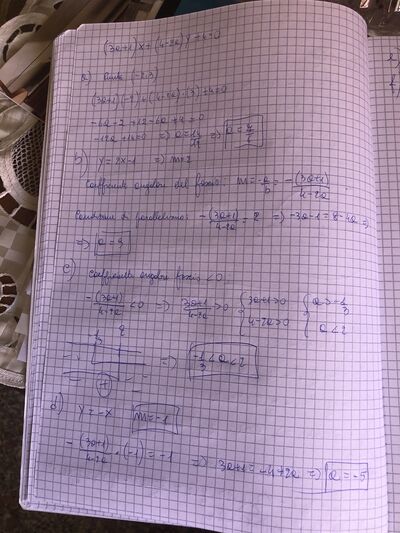 (3a+1)x+(4-2a)y+4=0
a) Punto (-2;3)
(3a+1)(-2)+(4-2a)·(3)+4=0
-6a-2+12-6a+4=0
-12a+14=0 => a=14/12 => a=7/6
b) y=2x-1 => m=2
coefficiente angolare del fascio: m=-a/b=-(3a+1)/4-2a
Condizione di parallelismo: -(3a+1)/4-2a=2 => -3a-1=8-4a =>
=> a=9
c) coefficiente angolare fascio <0:
-(3a+1)/4-2a<0 => 3a+1/4-2a>0 {3a+1>0 {a>-1/3
4-2a>0 a<2
=> -1/3<a<2
d) y=-x m=-1
-(3a+1)/4-2a·(-1)=-1 => 3a+1=-4+2a => a=-5